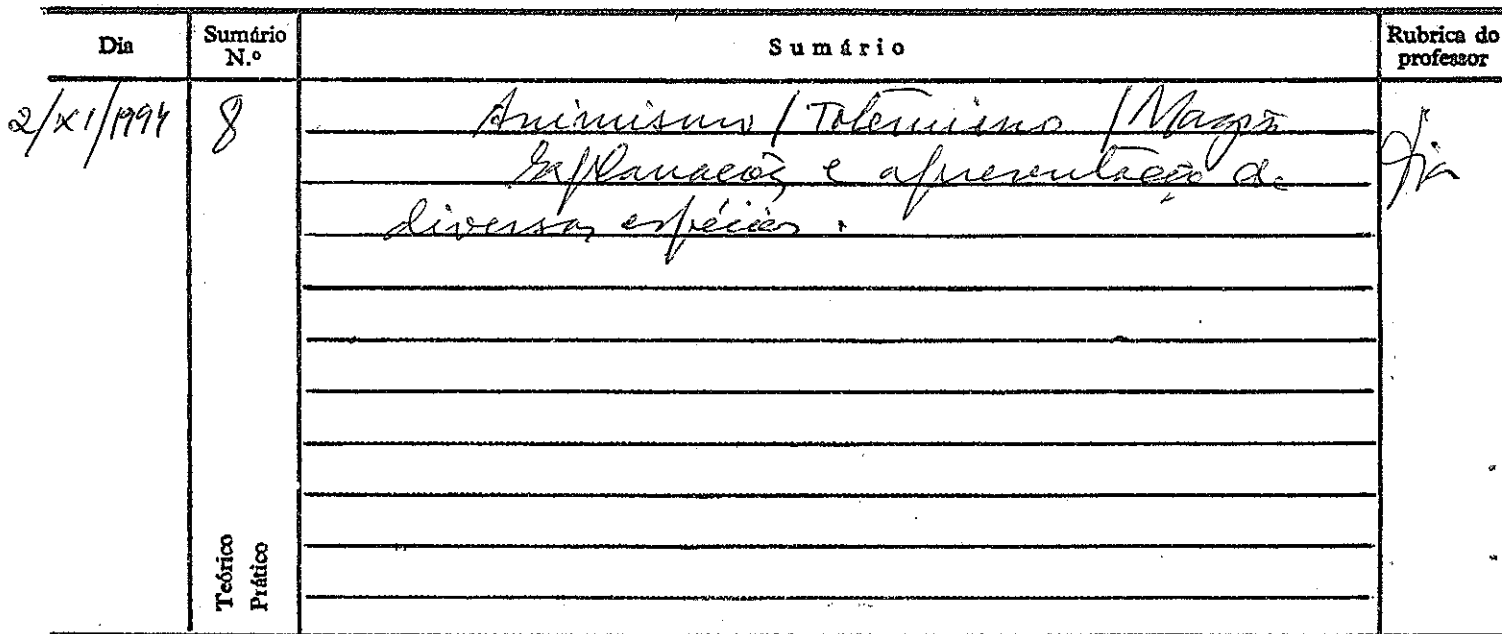 Dia Sumário N.º Sumário Rubrica do professor
2/XI/1994 8 Animismo / Totemismo / Magia
Explanação e apresentação de
diversas espécies.
Teórico
Prático